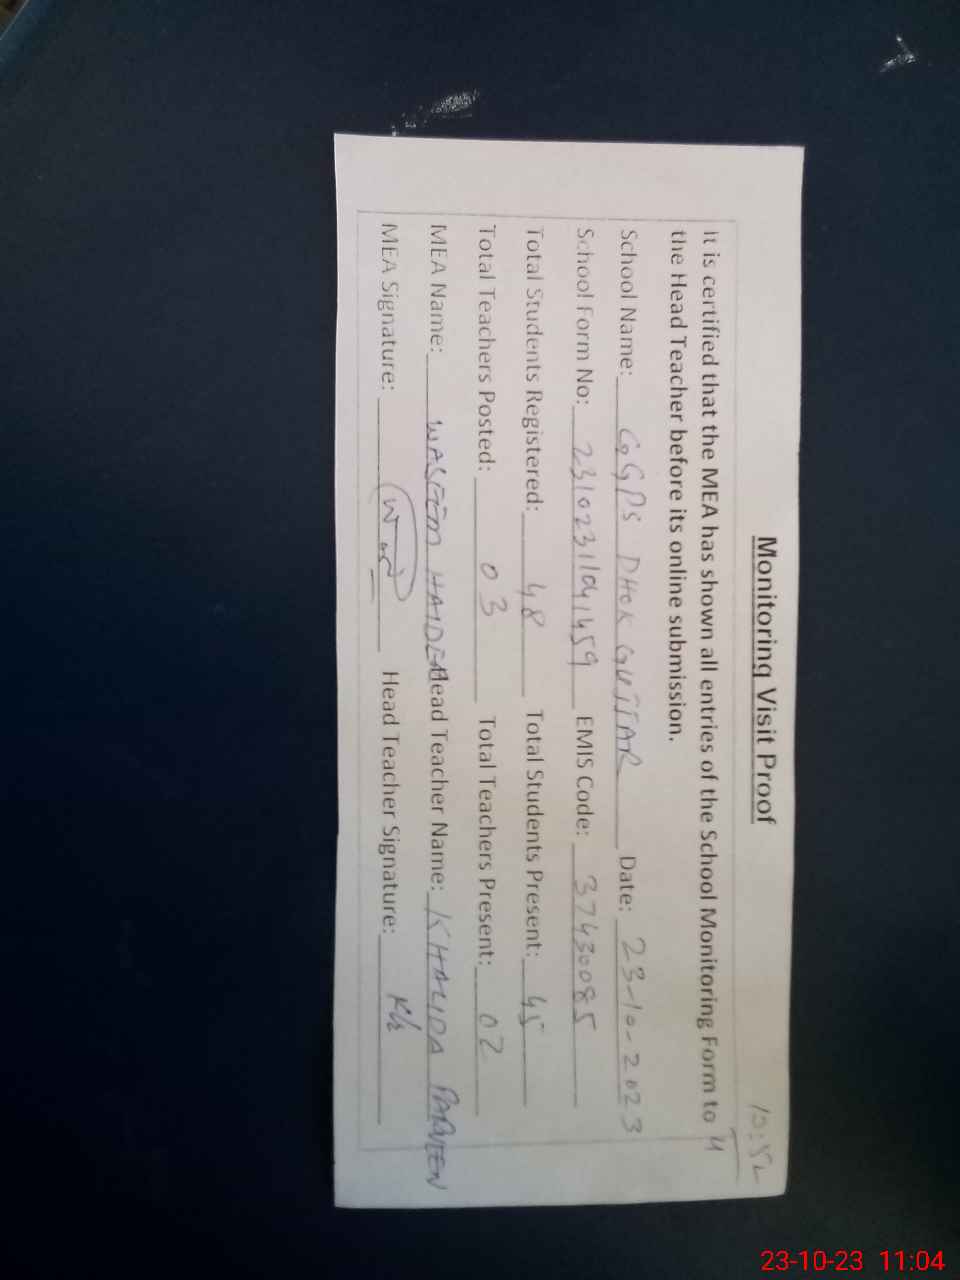 10:52
Monitoring Visit Proof
It is certified that the MEA has shown all entries of the School Monitoring Form to
the Head Teacher before its online submission.
School Name: GGPS DHOK GUJJAR Date: 23-10-2023
School Form No: 23102311041459 EMIS Code: 37430085
Total Students Registered: 48 Total Students Present: 45
Total Teachers Posted: 03 Total Teachers Present: 02
MEA Name: WASEEM HAIDER Head Teacher Name: KHALIDA PARVEEN
MEA Signature: Head Teacher Signature: Kh
23-10-23 11:04